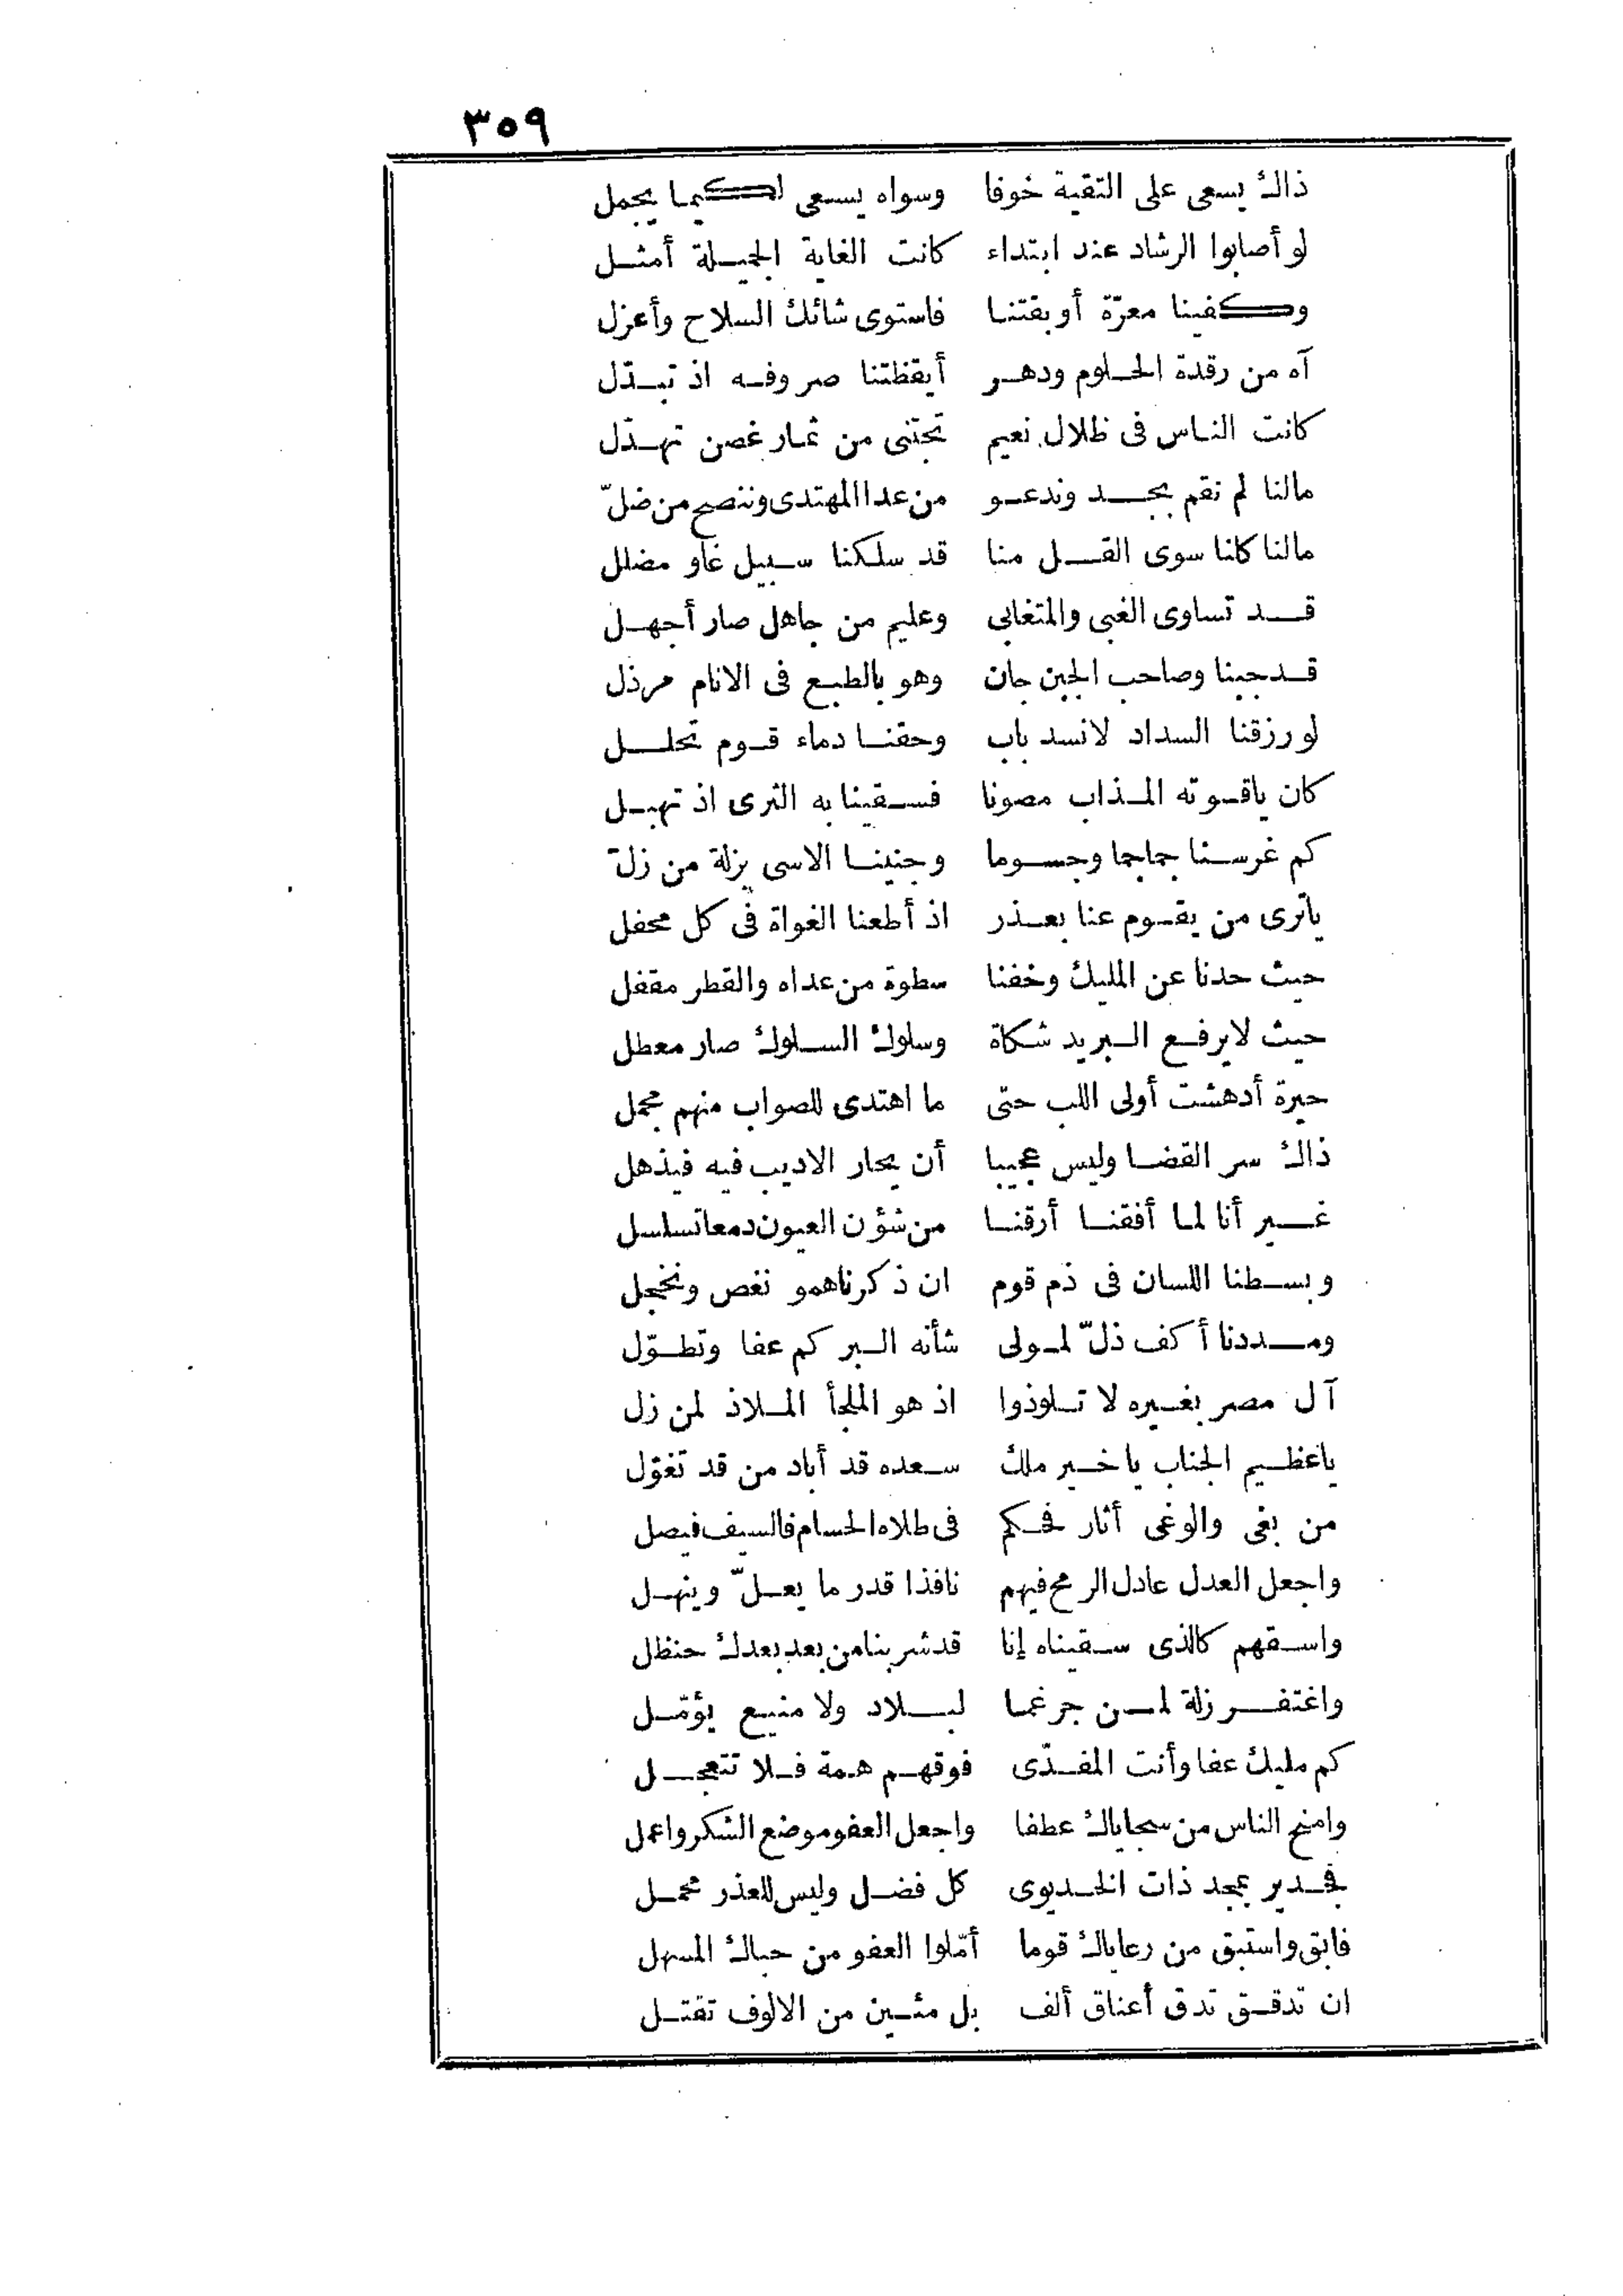 ٣٥٩
ذاك يسعى على التقية خوفا وسواه يسعى لكيما يجمل
لو أصابوا الرشاد عند ابتداء كانت الغاية الجميلة أمثل
وكفينا معرّة أوبقتنا فاستوى شائك السلاح وأعزل
آه من رقدة الحلوم ودهر أيقظتنا صروفه اذ تبدّل
كانت الناس فى ظلال نعيم تجتنى من ثمار غصن تهدّل
مالنا لم نقم بجد وندعو من عدا المهتدى وننصح من ضلّ
مالنا كلنا سوى القل منا قد سلكنا سبيل غاو مضلل
قد تساوى الغبى والمتغابى وعليم من جاهل صار أجهل
قد جبنا وصاحب الجبن جان وهو بالطبع فى الانام مرذل
لو رزقنا السداد لانسد باب وحقنا دماء قوم تحلل
كان ياقوته المذاب مصونا فسقينا به الثرى اذ تهبل
كم غرسنا جماجما وجسوما وجنينا الاسى بزلة من زل
ياترى من يقوم عنا بعذر اذ أطعنا الغواة فى كل محفل
حيث حدنا عن المليك وخفنا سطوة من عداه والقطر مقفل
حيث لا يرفع البريد شكاة وسلوك السلوك صار معطل
حيرة أدهشت أولى اللب حتى ما اهتدى للصواب منهم مجمل
ذاك سر القضا وليس عجيبا أن يحار الاديب فيه فيذهل
غير أنا لما أفقنا أرقنا من شؤن العيون دمعا تسلسل
وبسطنا اللسان فى ذم قوم ان ذكرناهمو نغص ونخجل
ومددنا أكف ذلّ لمولى شأنه البر كم عفا وتطوّل
آل مصر بغيره لا تلوذوا اذ هو الملجأ الملاذ لمن زل
ياعظيم الجناب يا خير ملك سعده قد أباد من قد تغوّل
من بغى والوغى أثار فحكم فى طلاه الحسام فالسيف فيصل
واجعل العدل عادل الرمح فيهم نافذا قدر ما يعلّ وينهل
واسقهم كالذى سقيناه إنا قد شربنا من بعد بعدك حنظل
واغتفر زلة لمن جر غما لبلاد ولا منيع يؤمّل
كم مليك عفا وأنت المفدّى فوقهم همة فلا تتعجل
وامنح الناس من سجاياك عطفا واجعل العفو موضع الشكر واعمل
فجدير بمجد ذات الخديوى كل فضل وليس للعذر محمل
فابق واستبق من رعاياك قوما أمّلوا العفو من حباك المسهل
ان تدقق تدق أعناق ألف بل مئين من الالوف تقتل